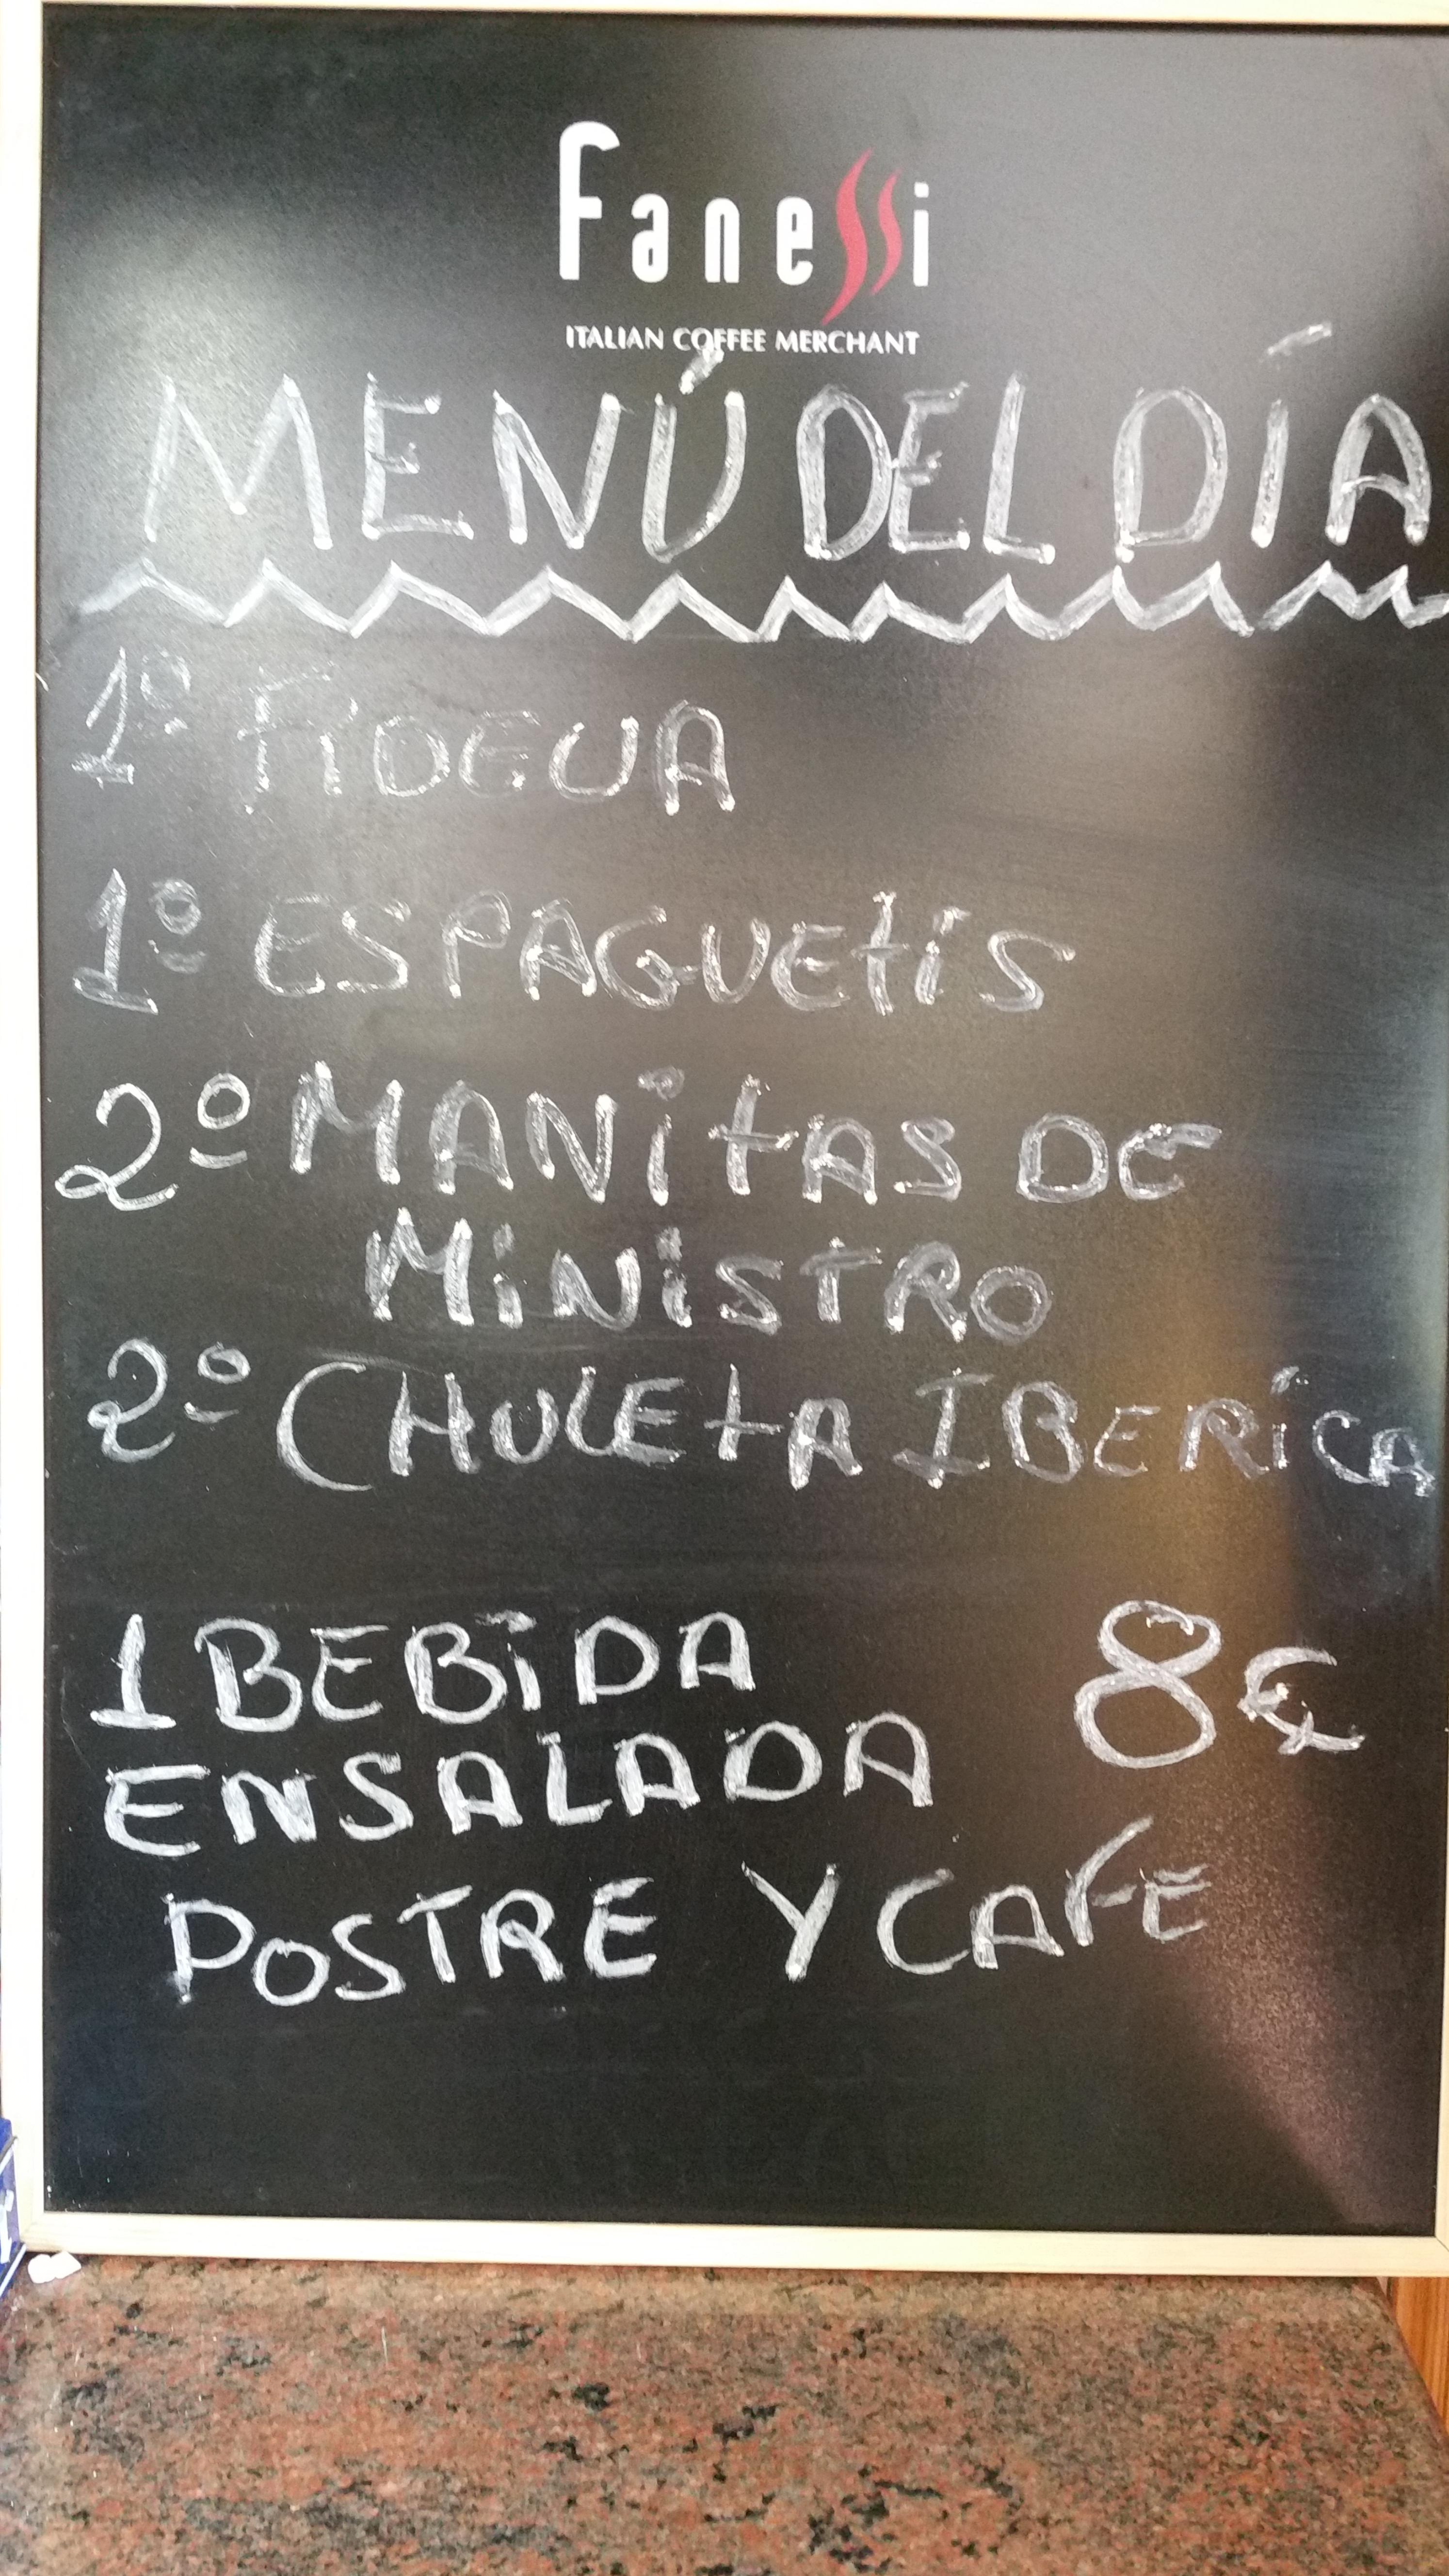 Fanessi
ITALIAN COFFEE MERCHANT
MENÚ DEL DÍA
1º FiDEUA
1º ESPAGUEtiS
2º MANitAS DE
MiNiSTRO
2º CHULEtA IBERiCA
1 BEBiDA
8€
ENSALADA
POSTRE Y CAFE